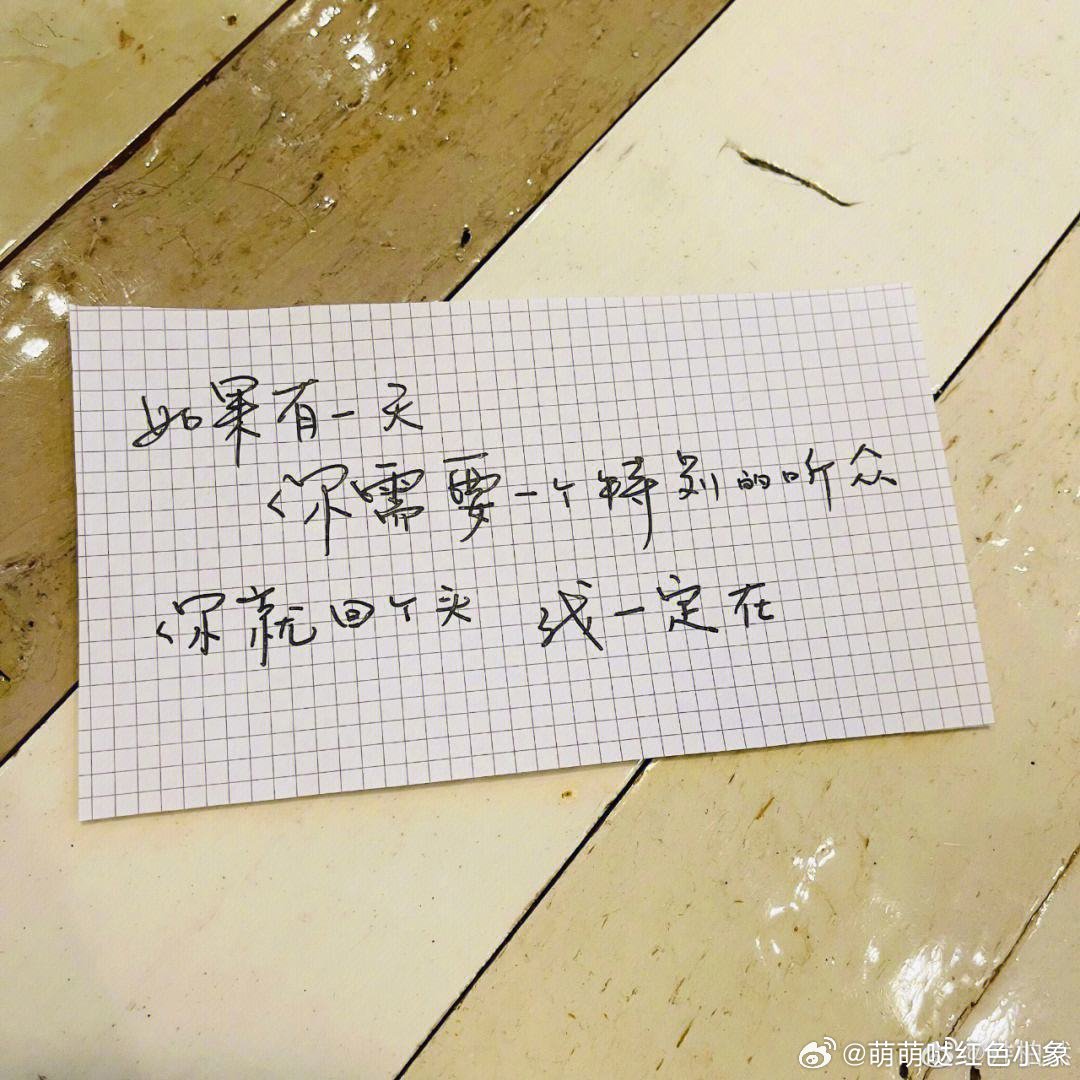 如果有一天
你需要一个特别的听众
你就回个头 我一定在
@萌萌哒红色小象